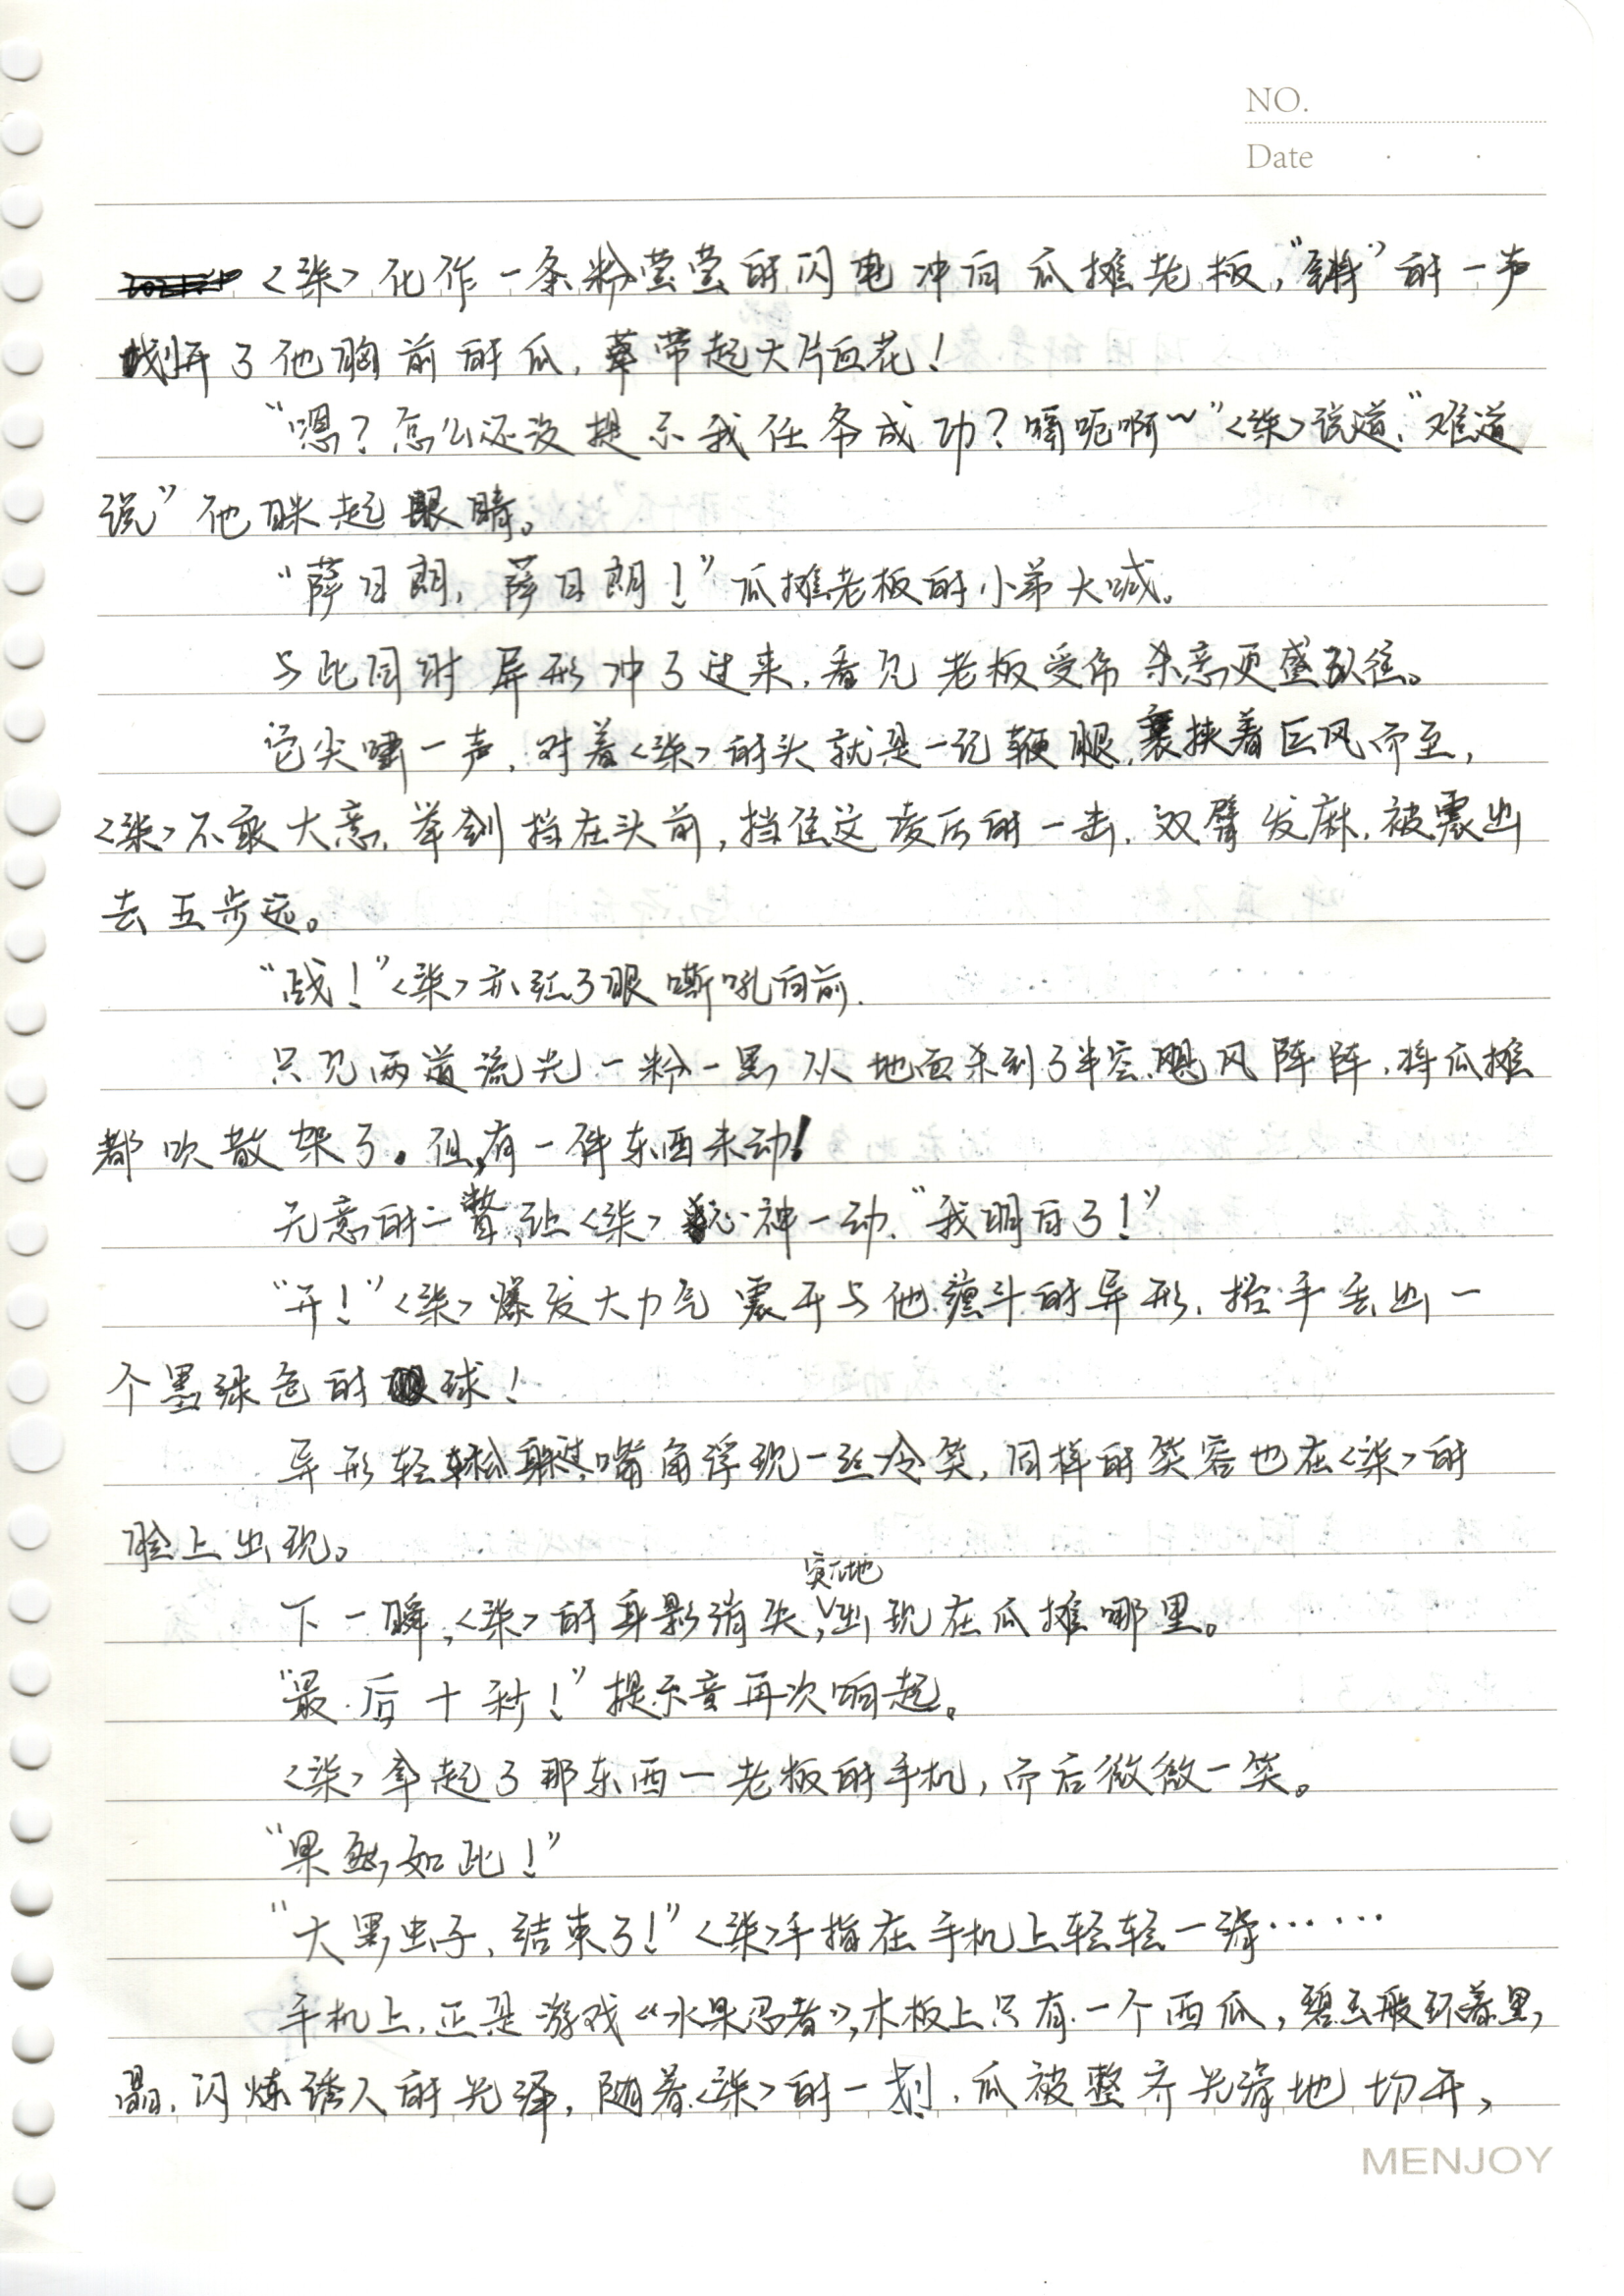 NO.
Date
<柒>化作一条粉莹莹的闪电冲向瓜摊老板，“锵”的一声
划开了他胸前的瓜，带起大片血花！
“嗯？怎么还没提示我任务成功？嗬呃啊~”<柒>说道，“难道
说”他眯起眼睛。
“萨日朗，萨日朗！”瓜摊老板的小弟大喊。
与此同时异形冲了过来，看见老板受伤杀意更盛以往。
它尖啸一声，对着<柒>的头就是一记鞭腿，裹挟着巨风而至，
<柒>不敢大意，举剑挡在头前，挡住这凌厉的一击，双臂发麻，被震出
去五步远。
“战！”<柒>亦红了眼嘶吼向前.
只见两道流光一粉一黑从地面杀到了半空，飓风阵阵，将瓜摊
都吹散架了。但有一件东西未动！
无意的一瞥，让<柒>心神一动，“我明白了！”
“开！”<柒>爆发大力气震开与他缠斗的异形，抬手丢出一
个墨绿色的球！
异形轻松躲过，嘴角浮现一丝冷笑，同样的笑容也在<柒>的
脸上出现。
下一瞬，<柒>的身影消失，突兀地出现在瓜摊哪里。
“最后十秒！”提示音再次响起。
<柒>拿起了那东西一老板的手机，而后微微一笑。
“果然如此！”
“大黑虫子，结束了！”<柒>手指在手机上轻轻一滑……
手机上，正是游戏《水果忍者》，木板上只有一个西瓜，碧玉般环着黑
晶，闪烁诱人的光泽，随着<柒>的一划，瓜被整齐光滑地切开，
MENJOY